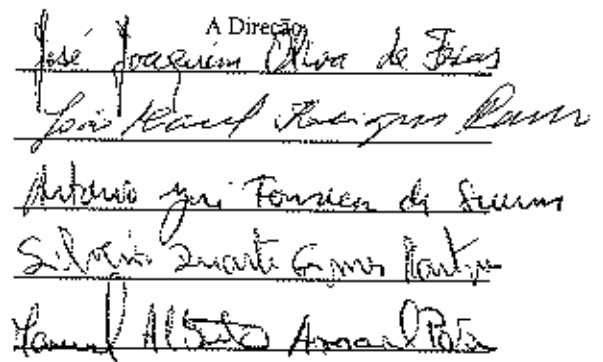 A Direção
José Joaquim Oliva de Frias
João Manuel Rodrigues
António José Fonseca de
Silvério Duarte Gomes Martins
Manuel Alberto Amaral